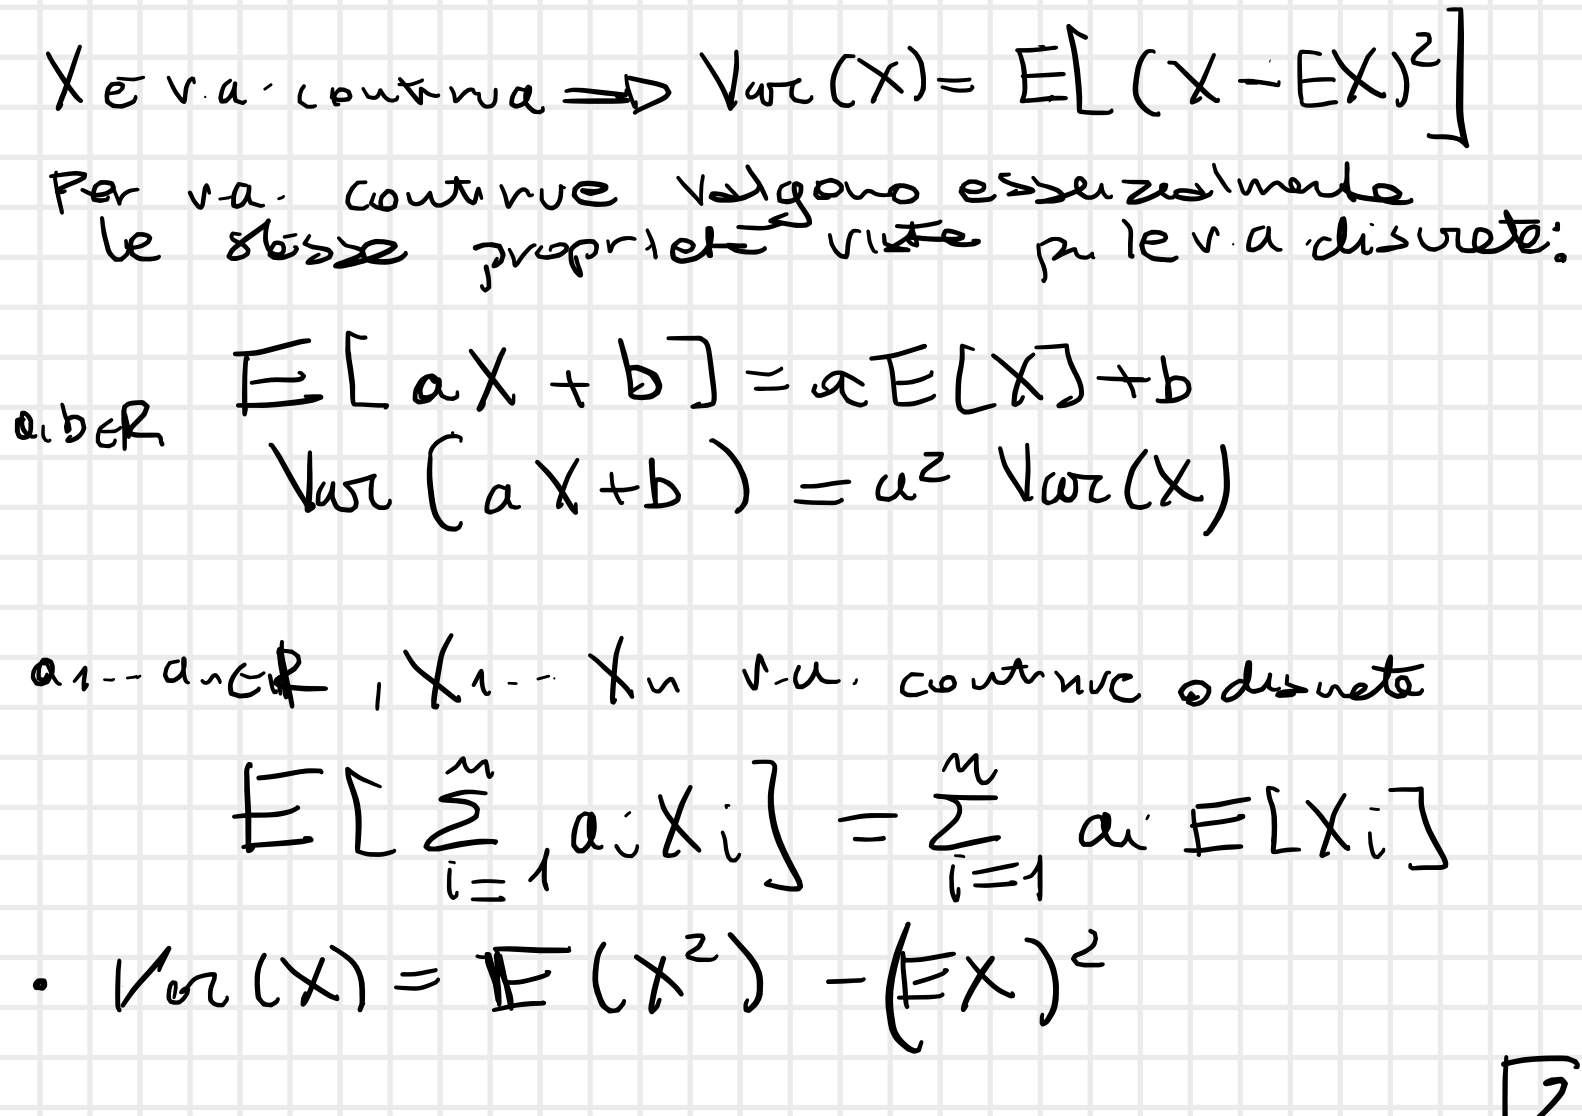 X è v.a. continua ⟹ Var(X) = E[(X - EX)²]
Per v.a. continue valgono essenzialmente
le stesse proprietà viste per le v.a. discrete:
E[aX + b] = aE[X] + b
a,b∈R
Var(aX+b) = a² Var(X)
a1...an∈R, X1... Xn v.a. continue o discrete
E[∑_{i=1}^{n} ai Xi] = ∑_{i=1}^{n} ai E[Xi]
• Var(X) = E(X²) - (EX)²
2